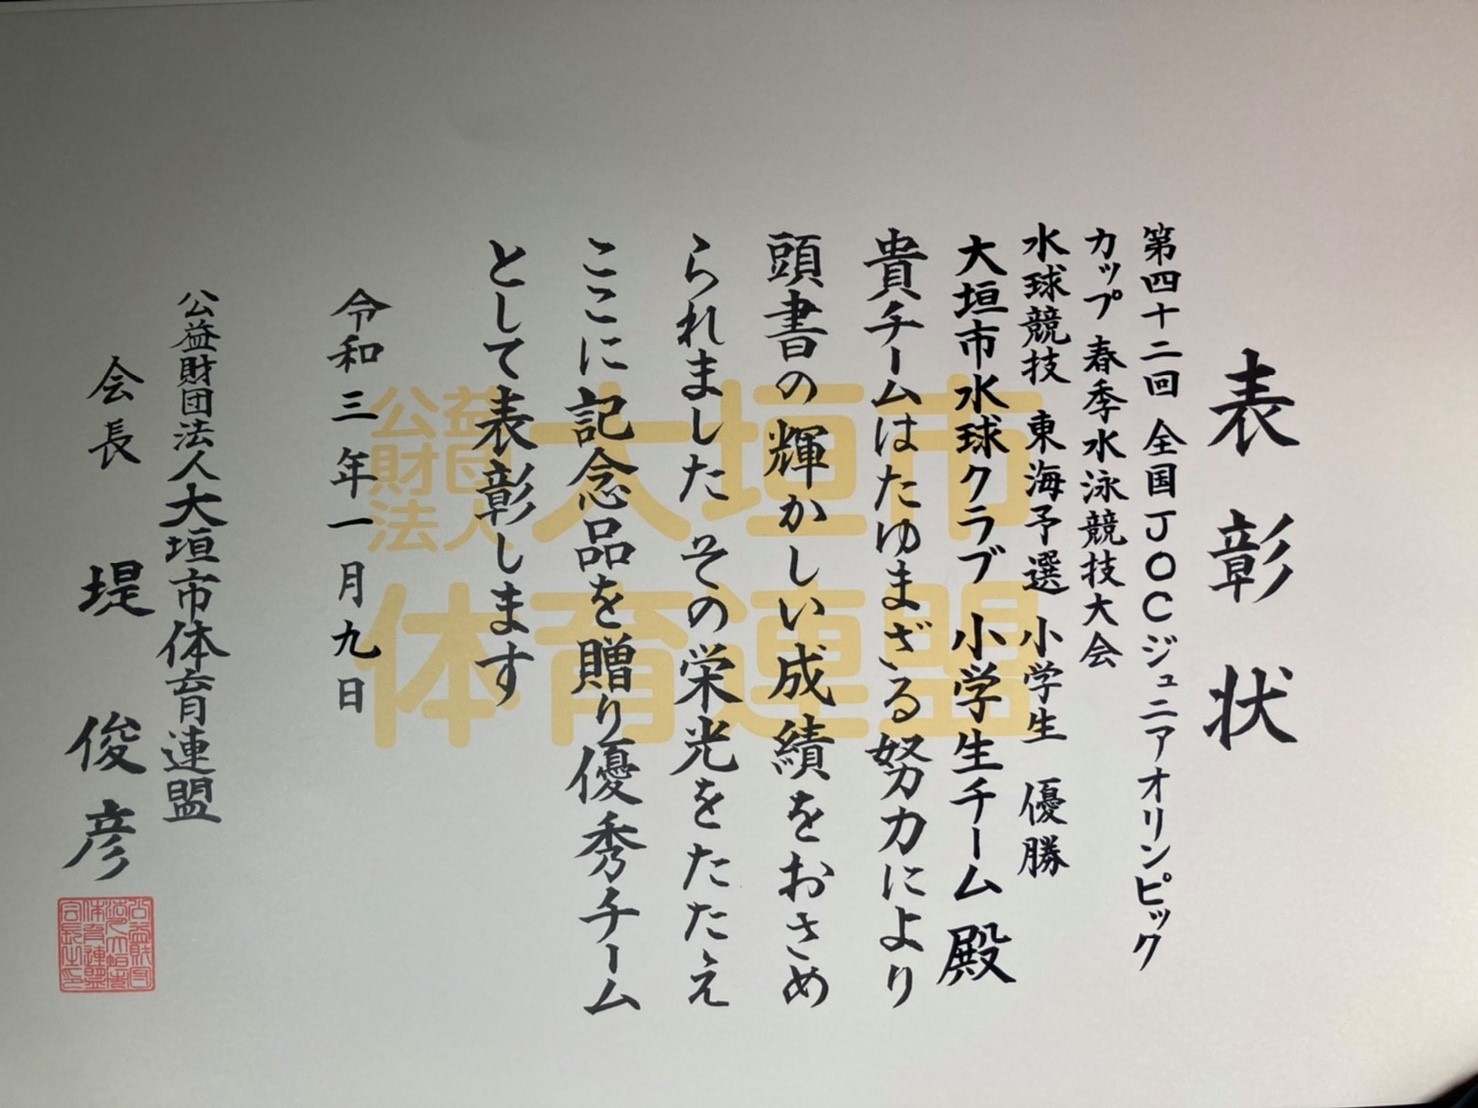 表彰状
第四十二回 全国JOCジュニアオリンピック
カップ 春季水泳競技大会
水球競技 東海予選 小学生 優勝
大垣市水球クラブ 小学生チーム 殿
貴チームはたゆまざる努力により
頭書の輝かしい成績をおさめ
られました その栄光をたたえ
ここに記念品を贈り優秀チーム
として表彰します
令和三年一月九日
公益財団法人大垣市体育連盟
会長 堤 俊彦
公益
財団
法人
大垣市
体育連盟